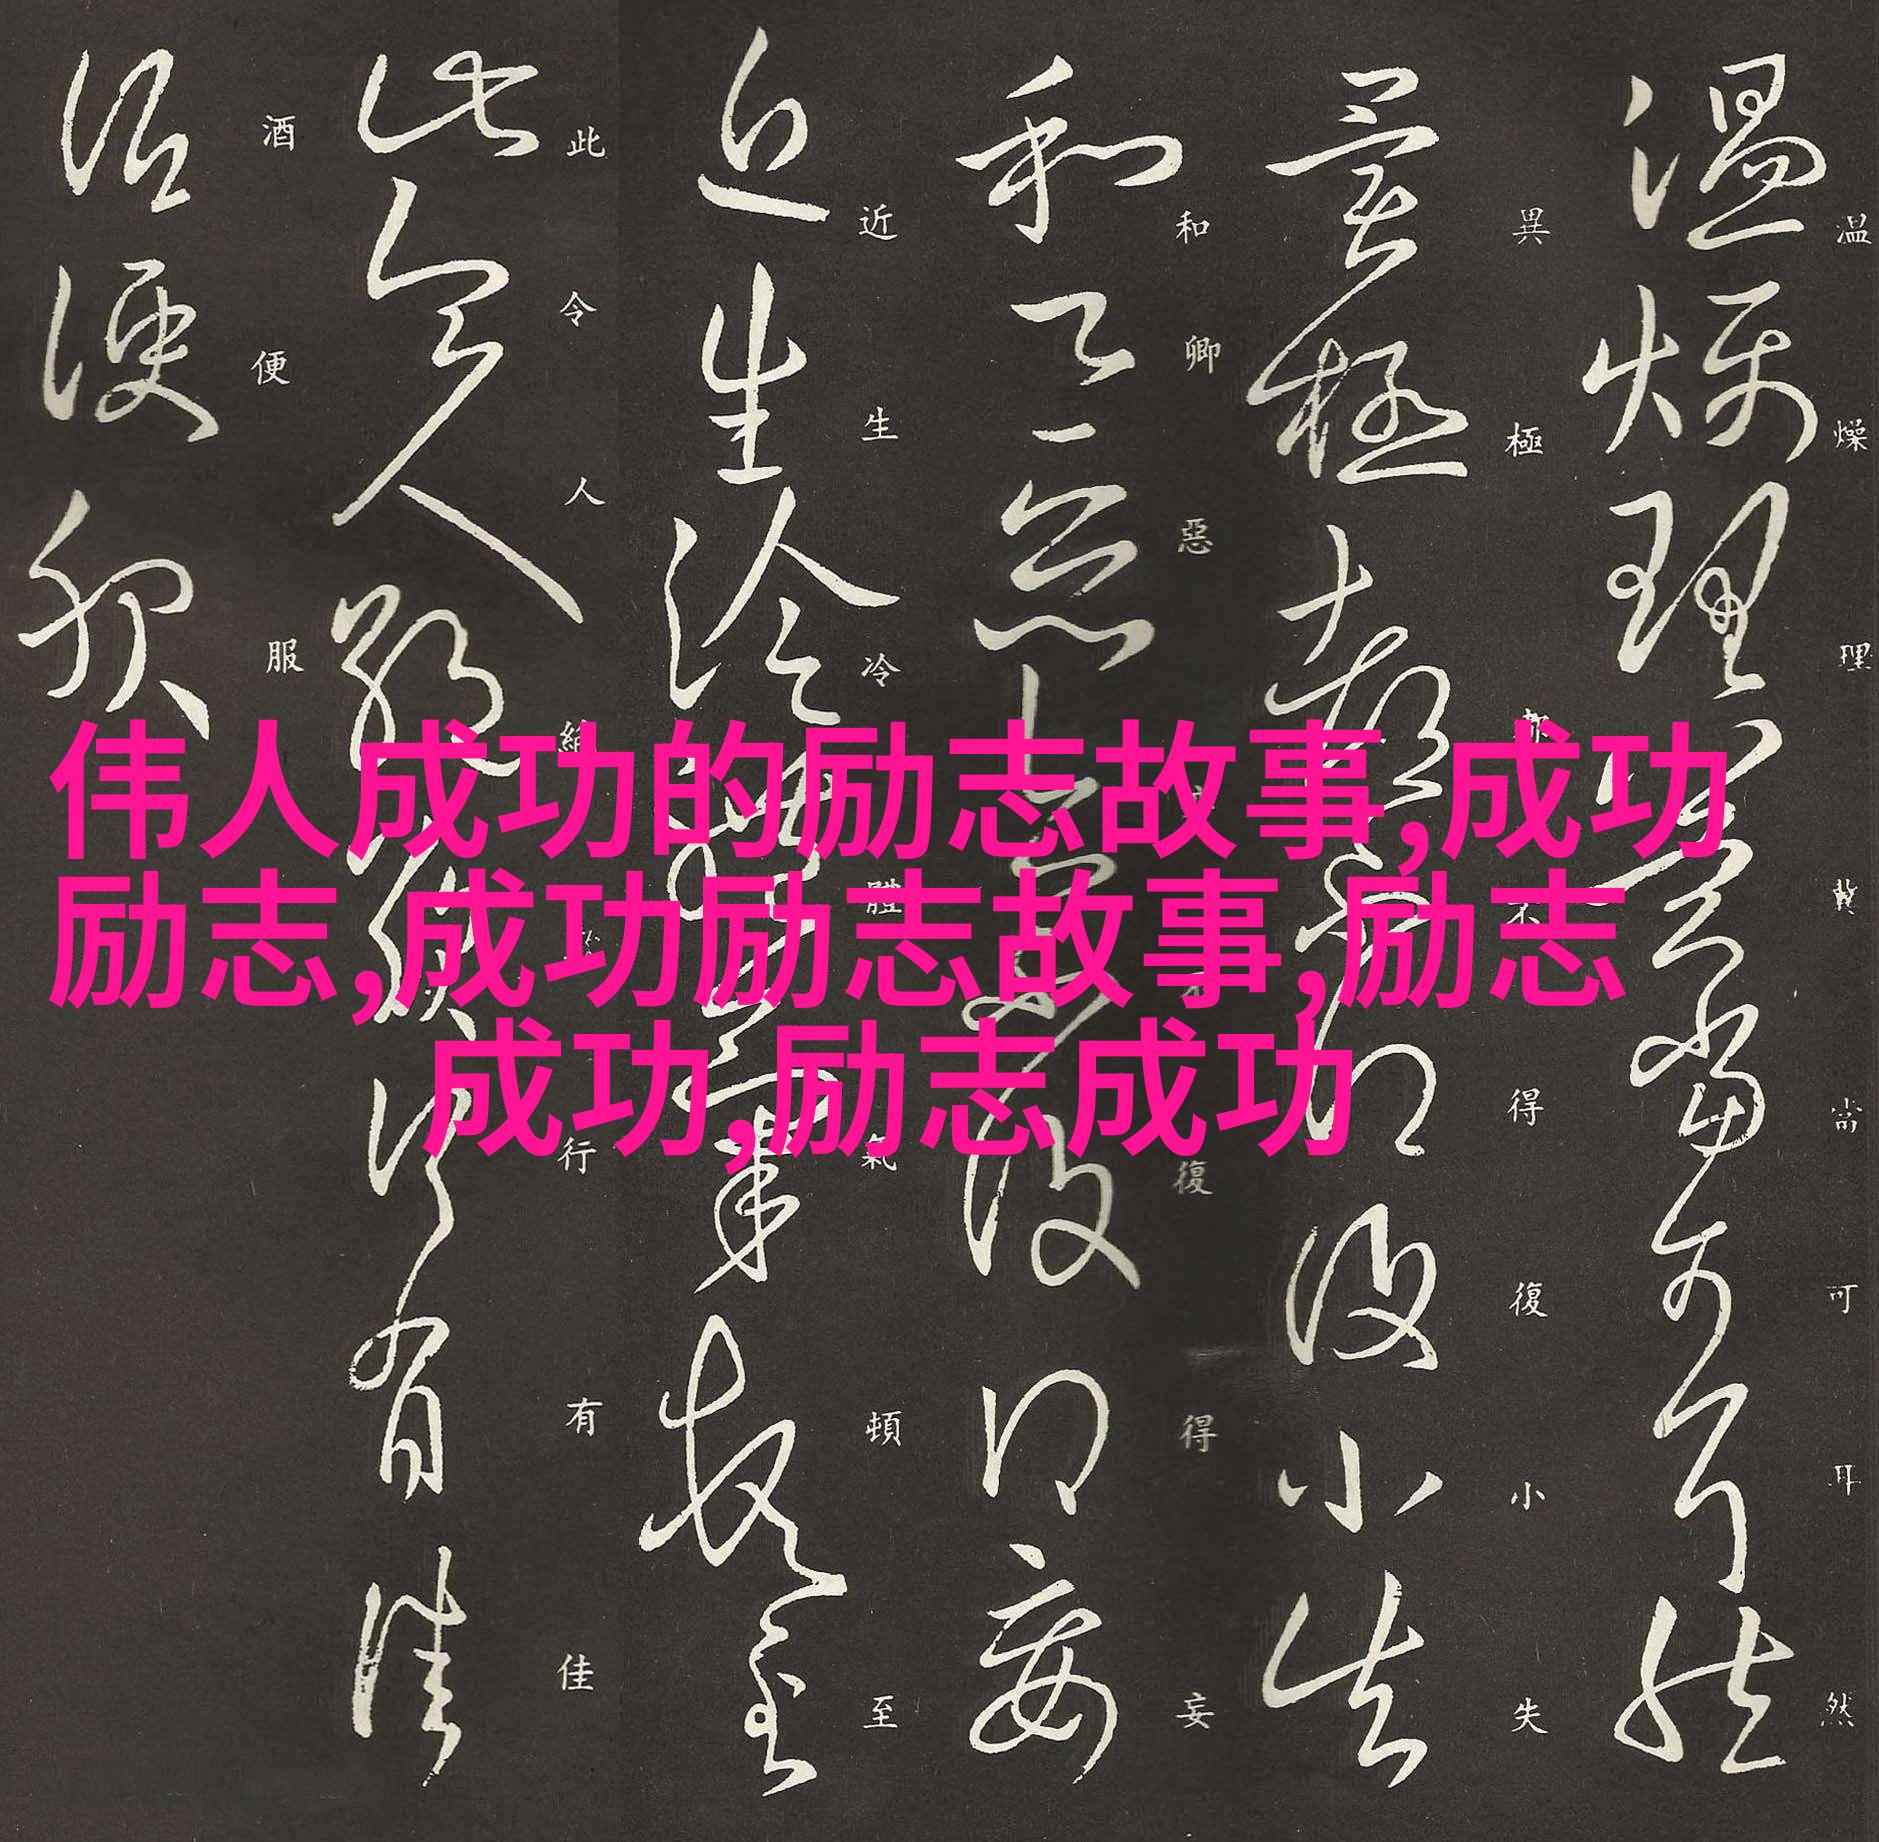 伟人成功的励志故事,成功
励志,成功励志故事,励志
成功,励志成功
温燥理冀當可耳然
異極都不得復小失
和卿惡不復得妄
近生冷體氣頓至
此令人絕行有佳
酒便服